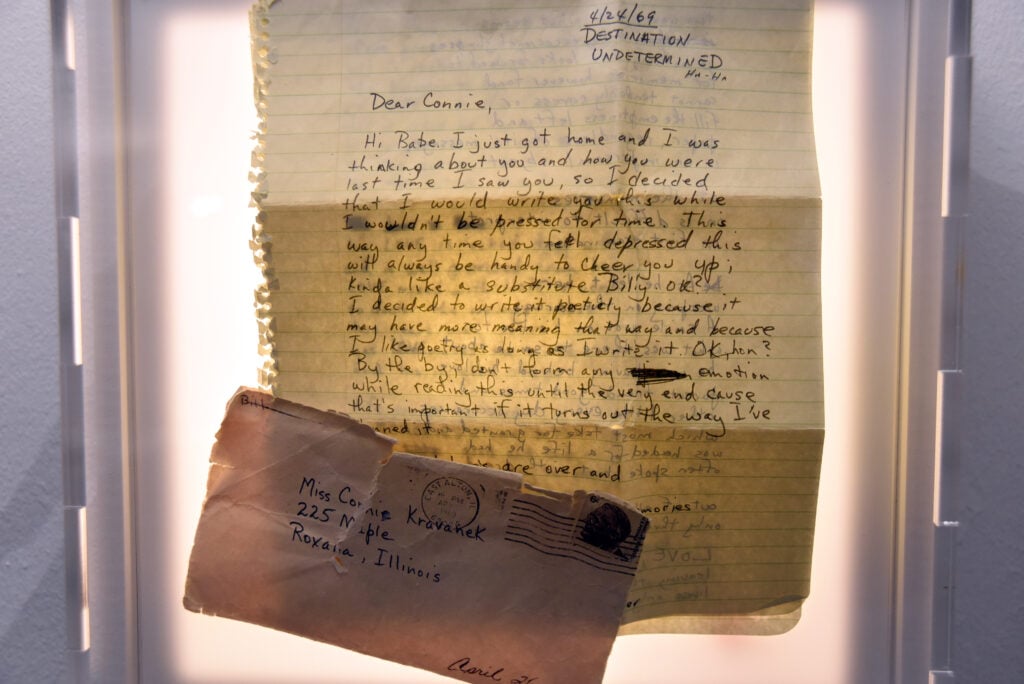 4/24/69
DESTINATION
UNDETERMINED
Ha-Ha
Dear Connie,
Hi Babe. I just got home and I was
thinking about you and how you were
last time I saw you, so I decided
that I would write you this while
I wouldn't be pressed for time. This
way any time you feel depressed this
will always be handy to cheer you up;
Kinda like a substitute Billy OK?
I decided to write it poeticly because it
may have more meaning that way and because
I like poetry as long as I write it. OK, hon?
By the by, don't form any emotion
while reading this until the very end cause
that's important if it turns out the way I've
it
are over and
Miss Connie Kravanek
225 Maple
Roxana, Illinois
EAST ALTON, IL
PM
April